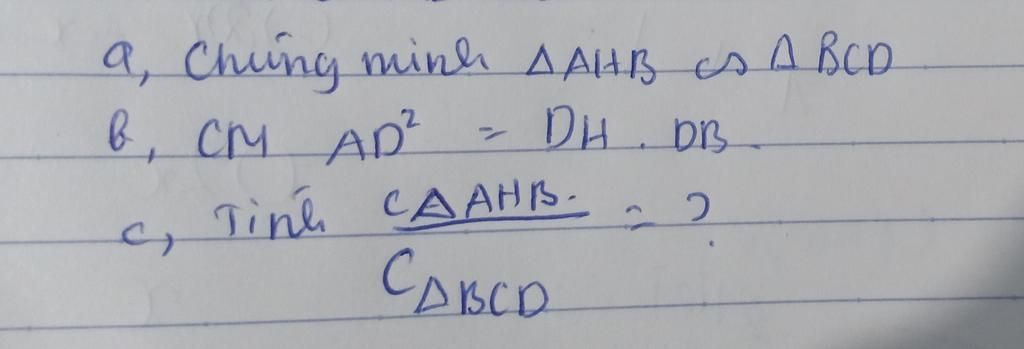 a, Chứng minh ΔAHB ∽ ΔBCD
b, CM AD² = DH . DB.
c, Tính CΔAHB. / CΔBCD = ?